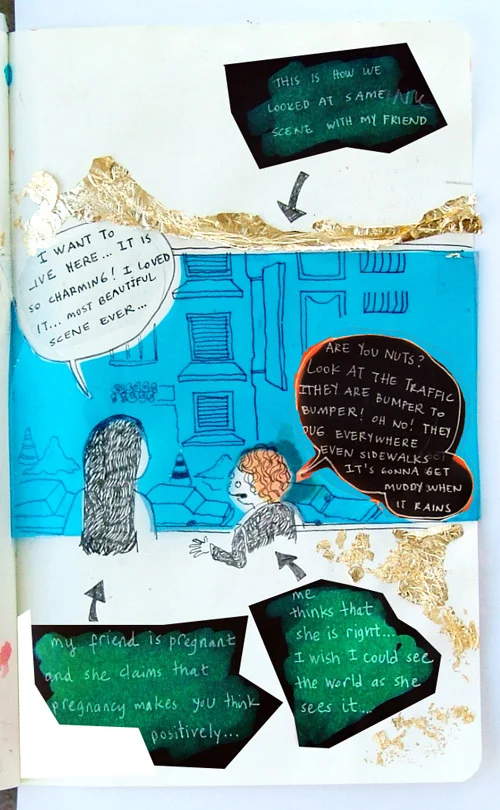 THIS IS HOW WE
LOOKED AT SAME
SCENE WITH MY FRIEND
I WANT TO
LIVE HERE... IT IS
SO CHARMING! I LOVED
IT... MOST BEAUTIFUL
SCENE EVER...
ARE YOU NUTS?
LOOK AT THE TRAFFIC
THEY ARE BUMPER TO
BUMPER! OH NO! THEY
DUG EVERYWHERE
EVEN SIDEWALKS
IT'S GONNA GET
MUDDY WHEN
IT RAINS
my friend is pregnant
and she claims that
pregnancy makes you think
positively...
me
thinks that
she is right...
I wish I could see
the world as she
sees it...